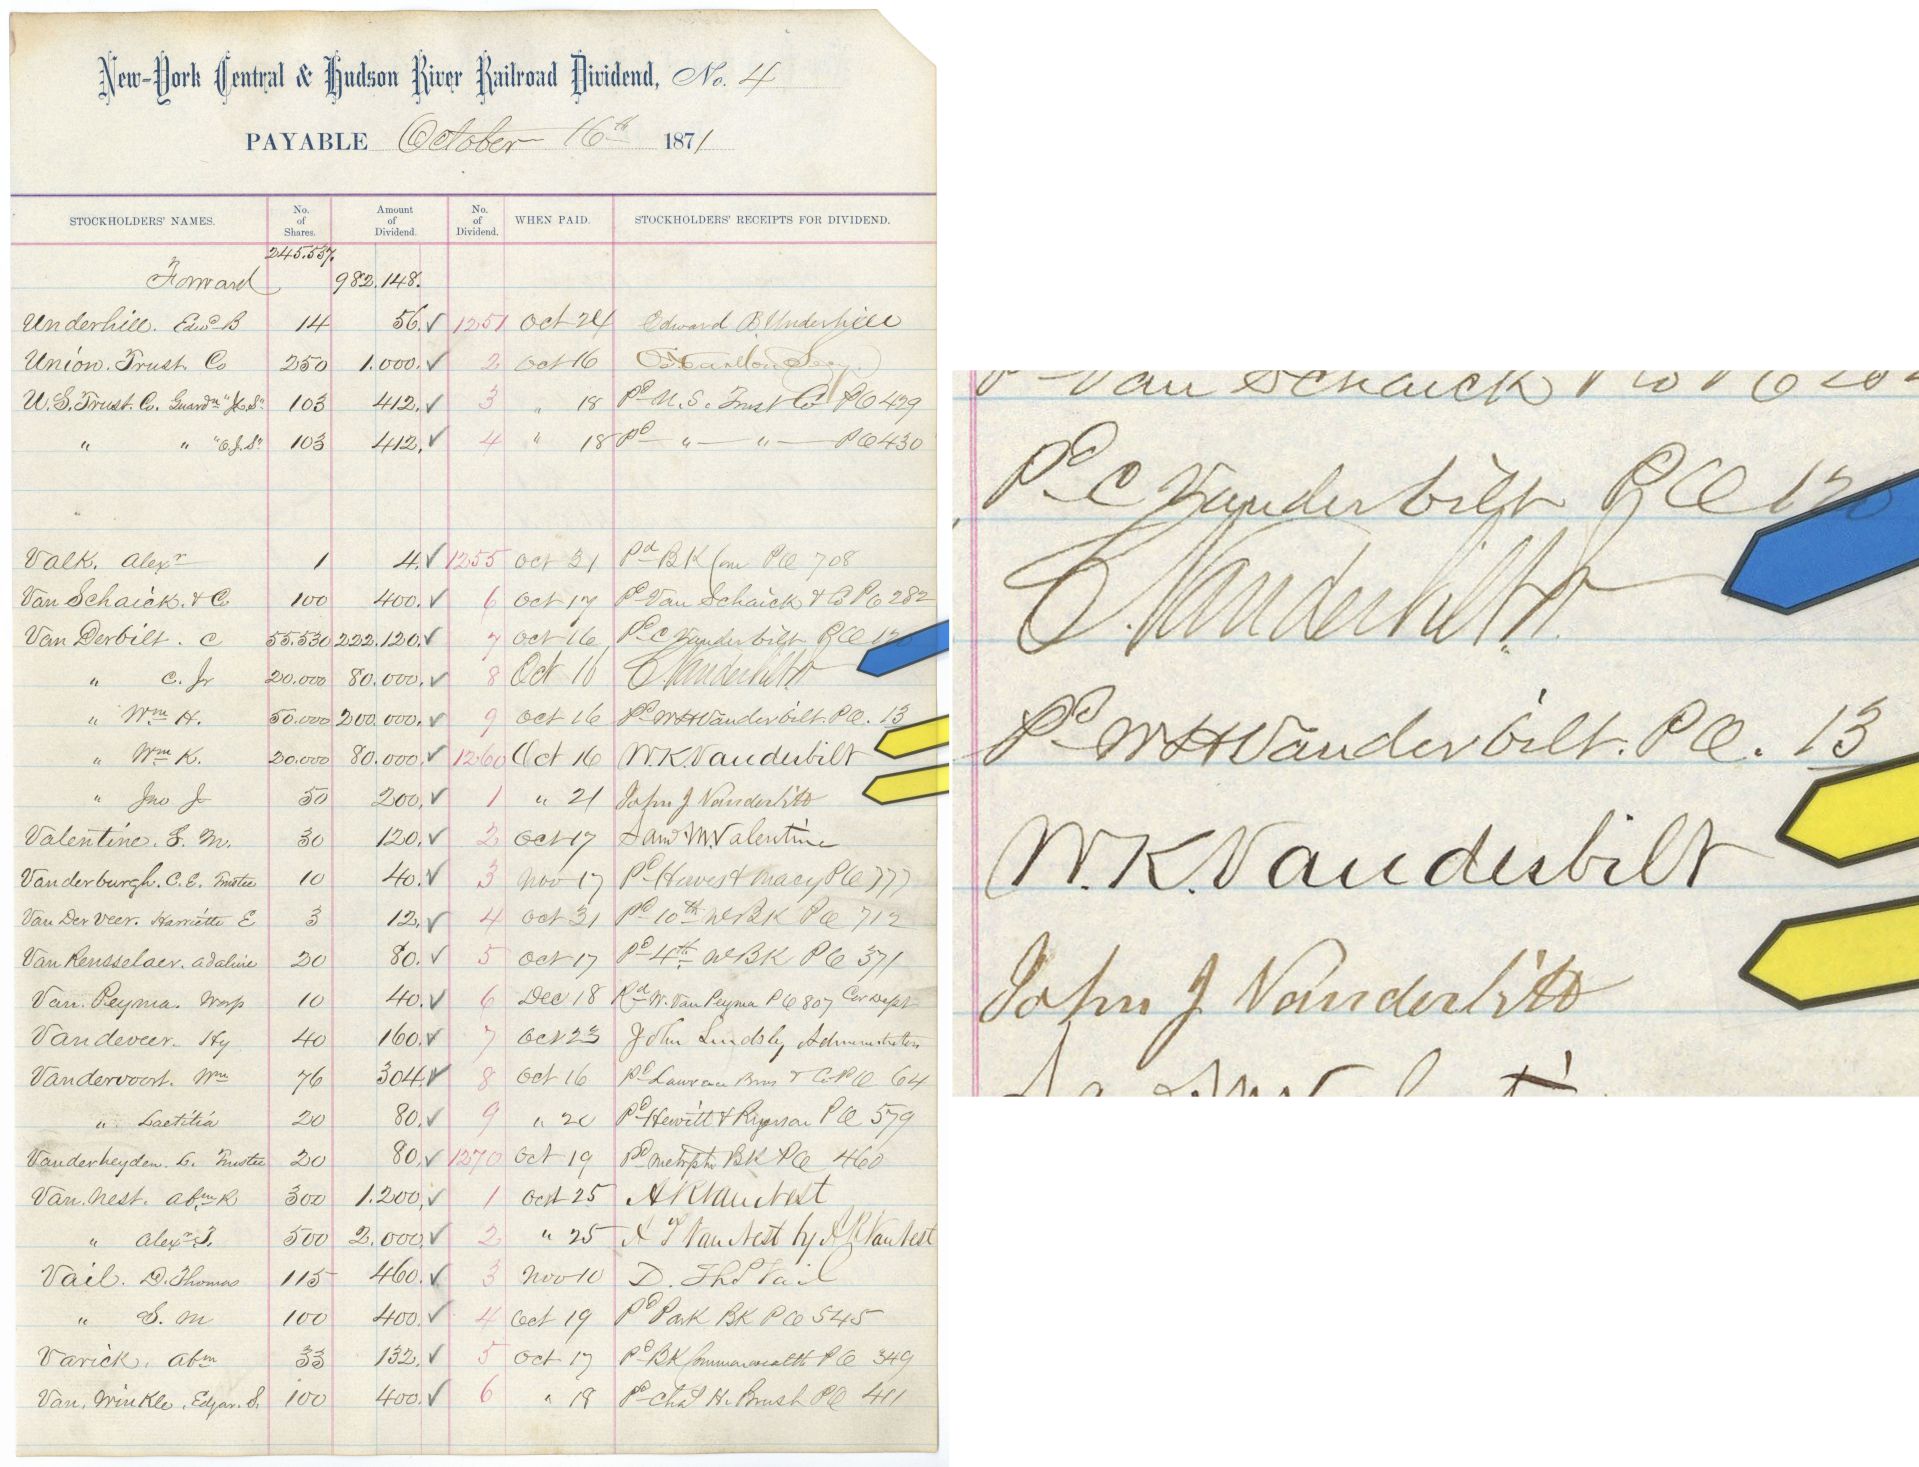 New-York Central & Hudson River Railroad Dividend, No. 4
PAYABLE October 16th 1871
STOCKHOLDERS' NAMES. No. of Shares. Amount of Dividend. No. of Dividend. WHEN PAID. STOCKHOLDERS' RECEIPTS FOR DIVIDEND.
Forward 245.537. 982.148.
Underhill. Edwd B 14 56. ✓ 1251 Oct 24 Edward B Underhill
Union. Trust. Co 250 1.000. ✓ 2 Oct 16
U.S. Trust. Co. Guardn 103 412. ✓ 3 " 18 Pd U.S. Trust Co PO 429
" " 103 412. ✓ 4 " 18 Pd " " PO 430
Valk. Alexr 1 4. ✓ 1255 Oct 31 Pd BK Com PO 708
Van Schaick. & Co 100 400. ✓ 6 Oct 17 Pd Van Schaick & Co PO 282
Van Derbilt. C 55.530 222.120. ✓ 7 Oct 16 Pd C Vanderbilt PO
" C. Jr 20.000 80.000. ✓ 8 Oct 16 C. Vanderbilt Jr.
" Wm H. 50.000 200.000. ✓ 9 Oct 16 Pd W H Vanderbilt. PO. 13
" Wm K. 20.000 80.000. ✓ 1260 Oct 16 W. K. Vanderbilt
" Jno J 50 200. ✓ 1 " 21 John J Vanderbilt
Valentine. S. M. 30 120. ✓ 2 Oct 17 Saml M. Valentine
Vanderburgh. C. E. Trustee 10 40. ✓ 3 Nov 17 Pd Hewes & Macy PO 777
Van Der Veer. Harriette E 3 12. ✓ 4 Oct 31 Pd 10th N BK PO 712
Van Rensselaer. Adaline 20 80. ✓ 5 Oct 17 Pd 4th N BK PO 371
Van. Peyma. Worp 10 40. ✓ 6 Dec 18 W. Van Peyma PO 807
Vandeveer. Hy 40 160. ✓ 7 Oct 23 John Lindsly Administrator
Vandervoort. Wm 76 304. ✓ 8 Oct 16 Pd Lawrence Bros & Co PO 64
" Laetitia 20 80. ✓ 9 " 20 Pd Hewitt & PO 579
Vanderheyden. Trustee 20 80. ✓ 1270 Oct 19 Pd BK PO 460
Van. Nest. Abm R 300 1.200. ✓ 1 Oct 25 A R Van Nest
" Alexr T. 500 2.000. ✓ 2 " 25 A T Van Nest by A R Van Nest
Vail. D. Thomas 115 460. ✓ 3 Nov 10 D. Thos Vail
" S. M 100 400. ✓ 4 Oct 19 Pd Park BK PO 545
Varick. Abm 33 132. ✓ 5 Oct 17 Pd BK Commonwealth PO 349
Van. Winkle. Edgar. S. 100 400. ✓ 6 " 18 Pd Chas H. Brush PO 411
Pd Van Schaick & Co PO
Pd C Vanderbilt PO
C. Vanderbilt Jr.
Pd W H Vanderbilt. PO. 13
W. K. Vanderbilt
John J Vanderbilt